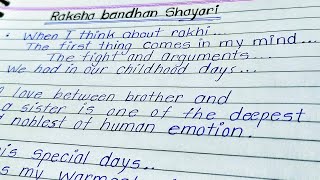 Raksha bandhan Shayari
• When I think about rakhi...
The first thing comes in my mind...
The fight and arguments...
We had in our childhood days...
love between brother and
a sister is one of the deepest
noblest of human emotion.
is special days..
my warmest